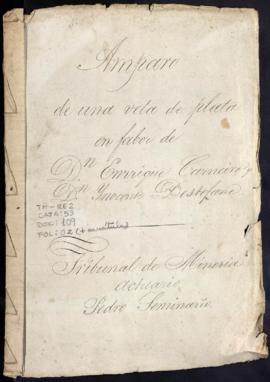 Amparo
de una veta de plata
en fabor de
Dn Enrrique Carneiro y
Dn Ynocente Destefane
TM-RE2
CAJA: 53
DOC: 109
FOL: 02 (+ carátula)
Tribunal de Mineria
Actuario
Pedro Seminario